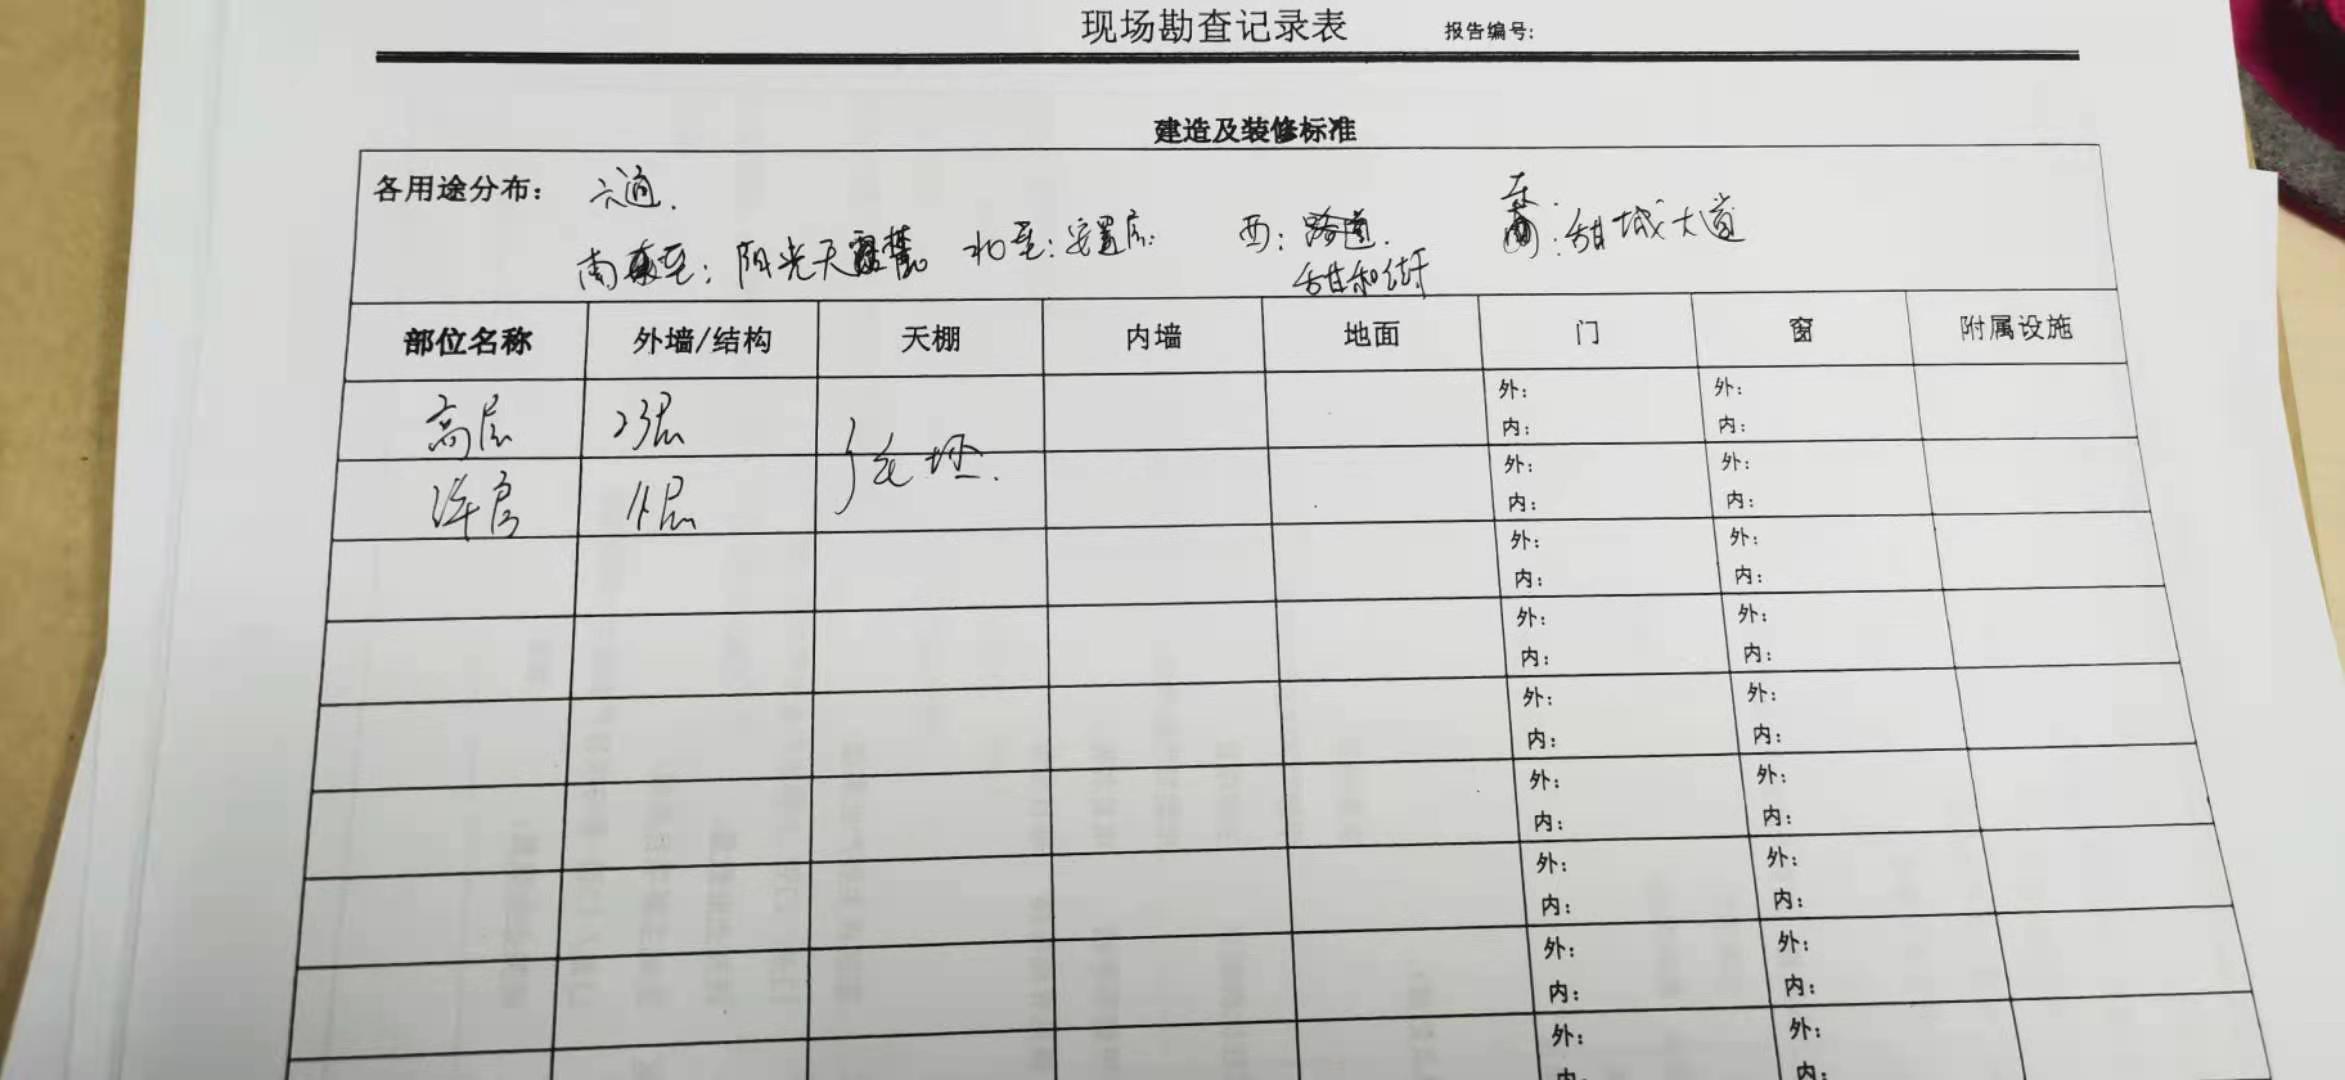 现场勘查记录表 报告编号:
建造及装修标准
各用途分布: 六通.
南至: 阳光天 北至: 安置房. 西: 东: 甜城大道
甜和街
部位名称 外墙/结构 天棚 内墙 地面 门 窗 附属设施
高层 23层 外: 外:
内: 内:
毛坯.
洋房 层 外: 外:
内: 内:
外: 外:
内: 内:
外: 外:
内: 内:
外: 外:
内: 内:
外: 外:
内: 内:
外: 外:
内: 内:
外: 外:
内: 内:
外: 外:
内: 内: